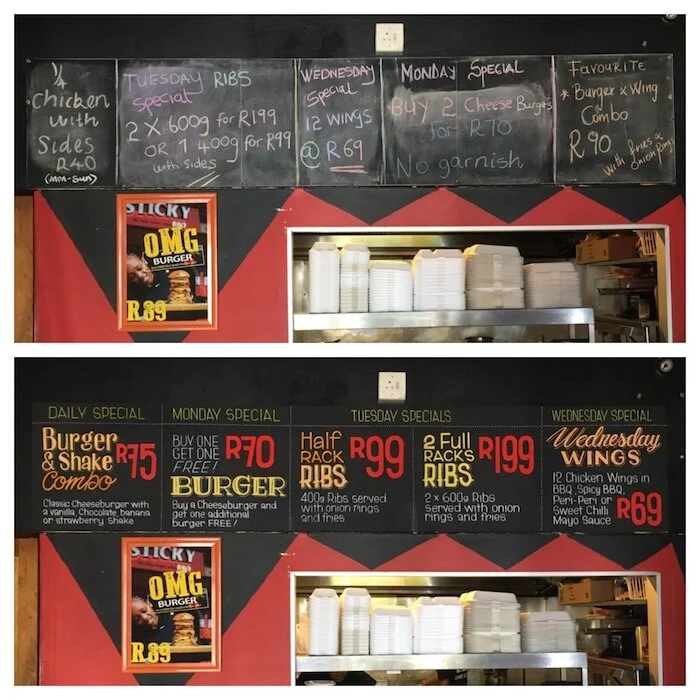 1/4
Chicken
with
Sides
R40
(mon-sun)
TUESDAY RIBS
Special
2 X 600g for R199
OR 1 400g for R99
with sides
WEDNESDAY
Special
12 WINGS
@ R69
MONDAY SPECIAL
BUY 2 Cheese Burgers
for R70
No garnish
FAVOURITE
* Burger x Wing
Combo
R90
with fries x
onion rings
STICKY
BBQ
OMG
BURGER
R89
DAILY SPECIAL
Burger
& Shake
Combo
R75
Classic Cheeseburger with
a vanilla, Chocolate, banana
or strawberry Shake
MONDAY SPECIAL
BUY ONE
GET ONE
FREE!
R70
BURGER
Buy a Cheeseburger and
get one additional
burger FREE!
TUESDAY SPECIALS
Half
RACK
RIBS
R99
400g Ribs served
with onion rings
and fries
2 Full
RACKS
RIBS
R199
2 x 600g Ribs
served with onion
rings and fries
WEDNESDAY SPECIAL
Wednesday
WINGS
12 Chicken Wings in
BBQ, Spicy BBQ,
Peri-Peri or
Sweet Chilli
Mayo Sauce
R69
STICKY
BBQ
OMG
BURGER
R89